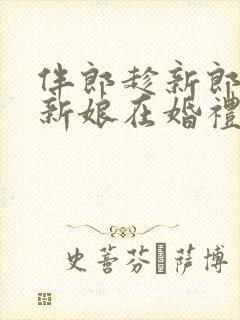 伴郎趁新郎
新娘在婚禮
史蒈芬 萨博